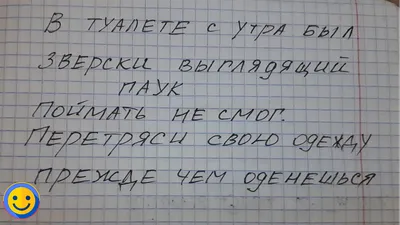 В ТУАЛЕТЕ С УТРА БЫЛ
ЗВЕРСКИ ВЫГЛЯДЯЩИЙ
ПАУК
ПОЙМАТЬ НЕ СМОГ.
ПЕРЕТРЯСИ СВОЮ ОДЕЖДУ
ПРЕЖДЕ ЧЕМ ОДЕНЕШЬСЯ